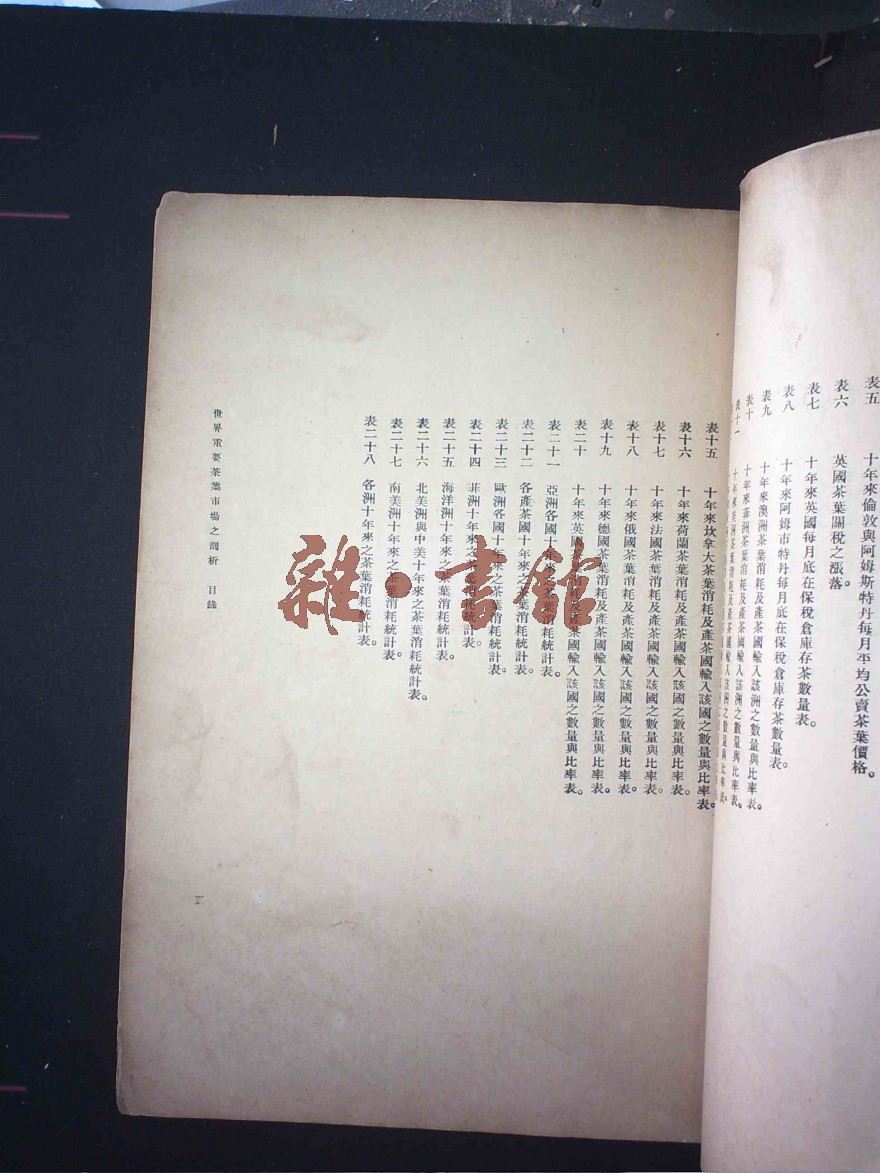 表五 十年來倫敦與阿姆斯特丹每月平均公賣茶葉價格。
表六 英國茶葉關稅之漲落。
表七 十年來英國每月底在保稅倉庫存茶數量表。
表八 十年來阿姆市特丹每月底在保稅倉庫存茶數量表。
表九 十年來澳洲茶葉消耗及產茶國輸入該洲之數量與比率表。
表十 十年來菲洲茶葉消耗及產茶國輸入該洲之數量與比率表。
表十一 十年來美洲茶葉消耗及產茶國輸入該洲之數量與比率表。
表十五 十年來坎拿大茶葉消耗及產茶國輸入該國之數量與比率表。
表十六 十年來荷蘭茶葉消耗及產茶國輸入該國之數量與比率表。
表十七 十年來法國茶葉消耗及產茶國輸入該國之數量與比率表。
表十八 十年來俄國茶葉消耗及產茶國輸入該國之數量與比率表。
表十九 十年來德國茶葉消耗及產茶國輸入該國之數量與比率表。
表二十 十年來英國消耗及產茶國輸入該國之數量與比率表。
表二十一 亞洲各國十年來之茶葉消耗統計表。
表二十二 各產茶國十年來之茶葉消耗統計表。
表二十三 歐洲各國十年來之茶葉消耗統計表。
表二十四 菲洲十年來之茶葉消耗統計表。
表二十五 海洋洲十年來之茶葉消耗統計表。
表二十六 北美洲與中美十年來之茶葉消耗統計表。
表二十七 南美洲十年來之茶葉消耗統計表。
表二十八 各洲十年來之茶葉消耗統計表。
世界重要茶葉市場之剖析 目錄
雜·書館